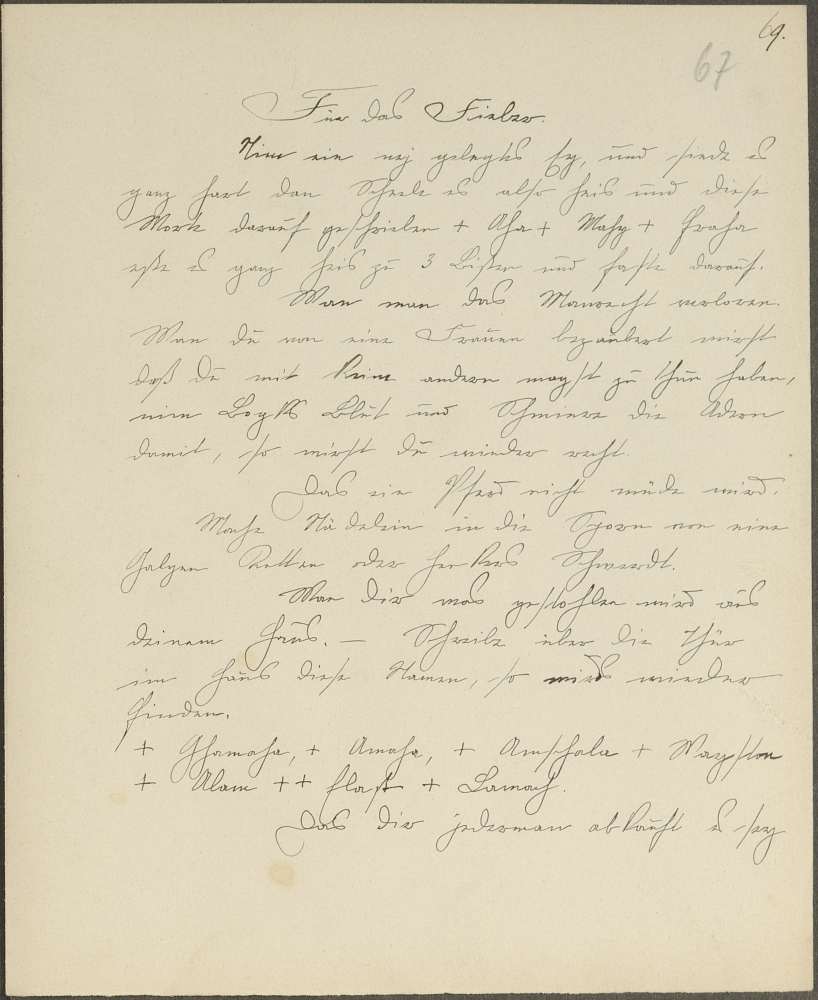 69.
67
Für das Fieber.
Nim ein nej gelegts Ey, und siede es
ganz hart dan Scheele es also heis und diese
Worte darauf geschrieben + Aha + Mahy + Froha
eße es ganz heis zu 3 Bißen und faste darauf.
Wan man das Manrecht verloren.
Wan du von eine Frauen bezaubert wirst
daß du mit keine andern magst zu thun haben,
nim Bogks Blut und Schmiere die Adern
damit, so wirst du wieder recht.
Das ein Pferd nicht müde wird.
Mache Rädelein in die Sporn von eine
Galgen Ketten oder Henkers Schwerdt.
Wan dir was gestohlen wird aus
deinem Haus. — Schreibe über die Thür
im Haus diese Namen, so wirds wieder
finden.
+ Chamaha, + Amaha, + Amschala + Waystou
+ Alam ++ Elast + Lamach.
Das dir jederman abkauft es sey